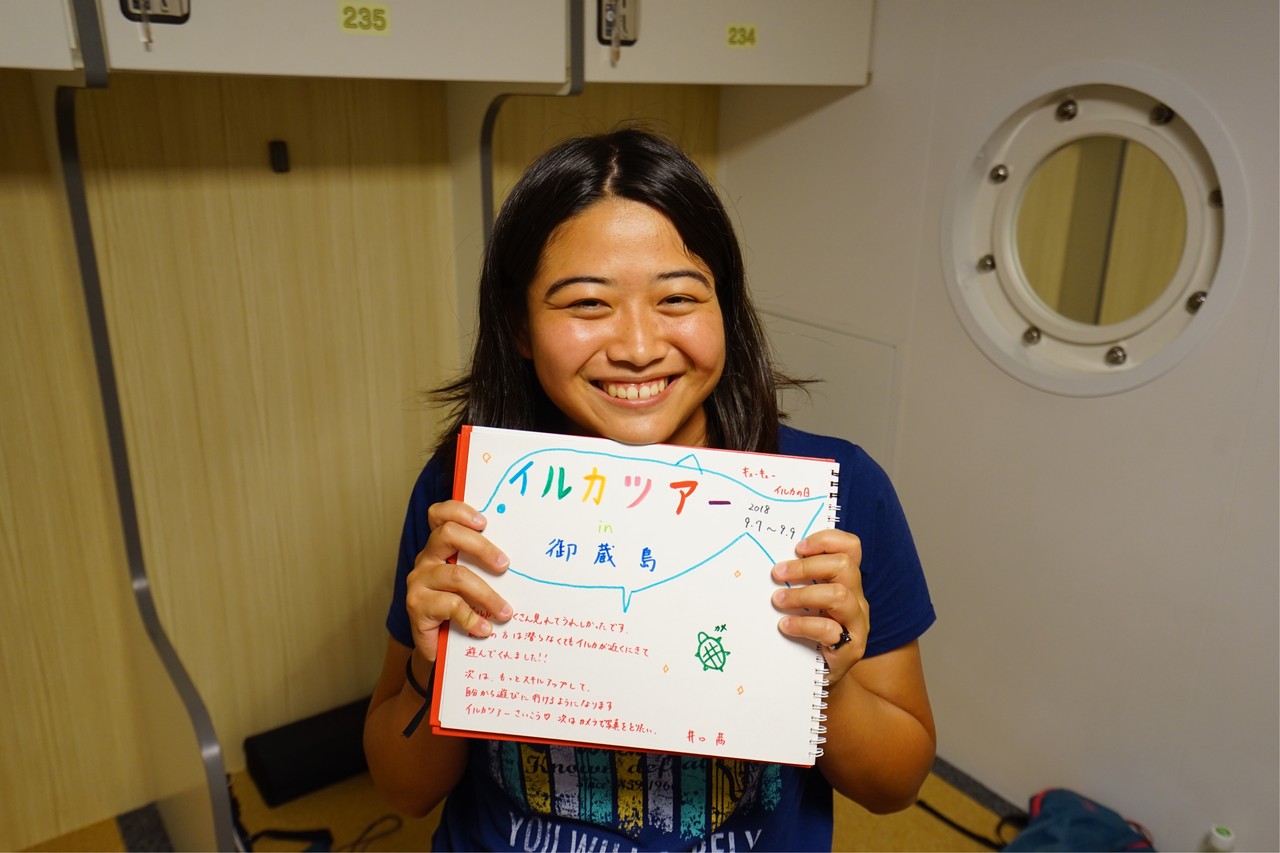 235
234
イルカツアー
キューキュー
イルカの日
2018
9.7〜9.9
in
御蔵島
くさん見れてうれしかったです。
の方は潜らなくてもイルカが近くにきて
遊んでくれました!!
カメ
次は、もっとスキルアップして、
船から遊びに行けるようになります
イルカツアーさいこう♡ 次はカメラで写真をとりたい。
井口 茜
Known defeat
since 859 1960
YOU WILL